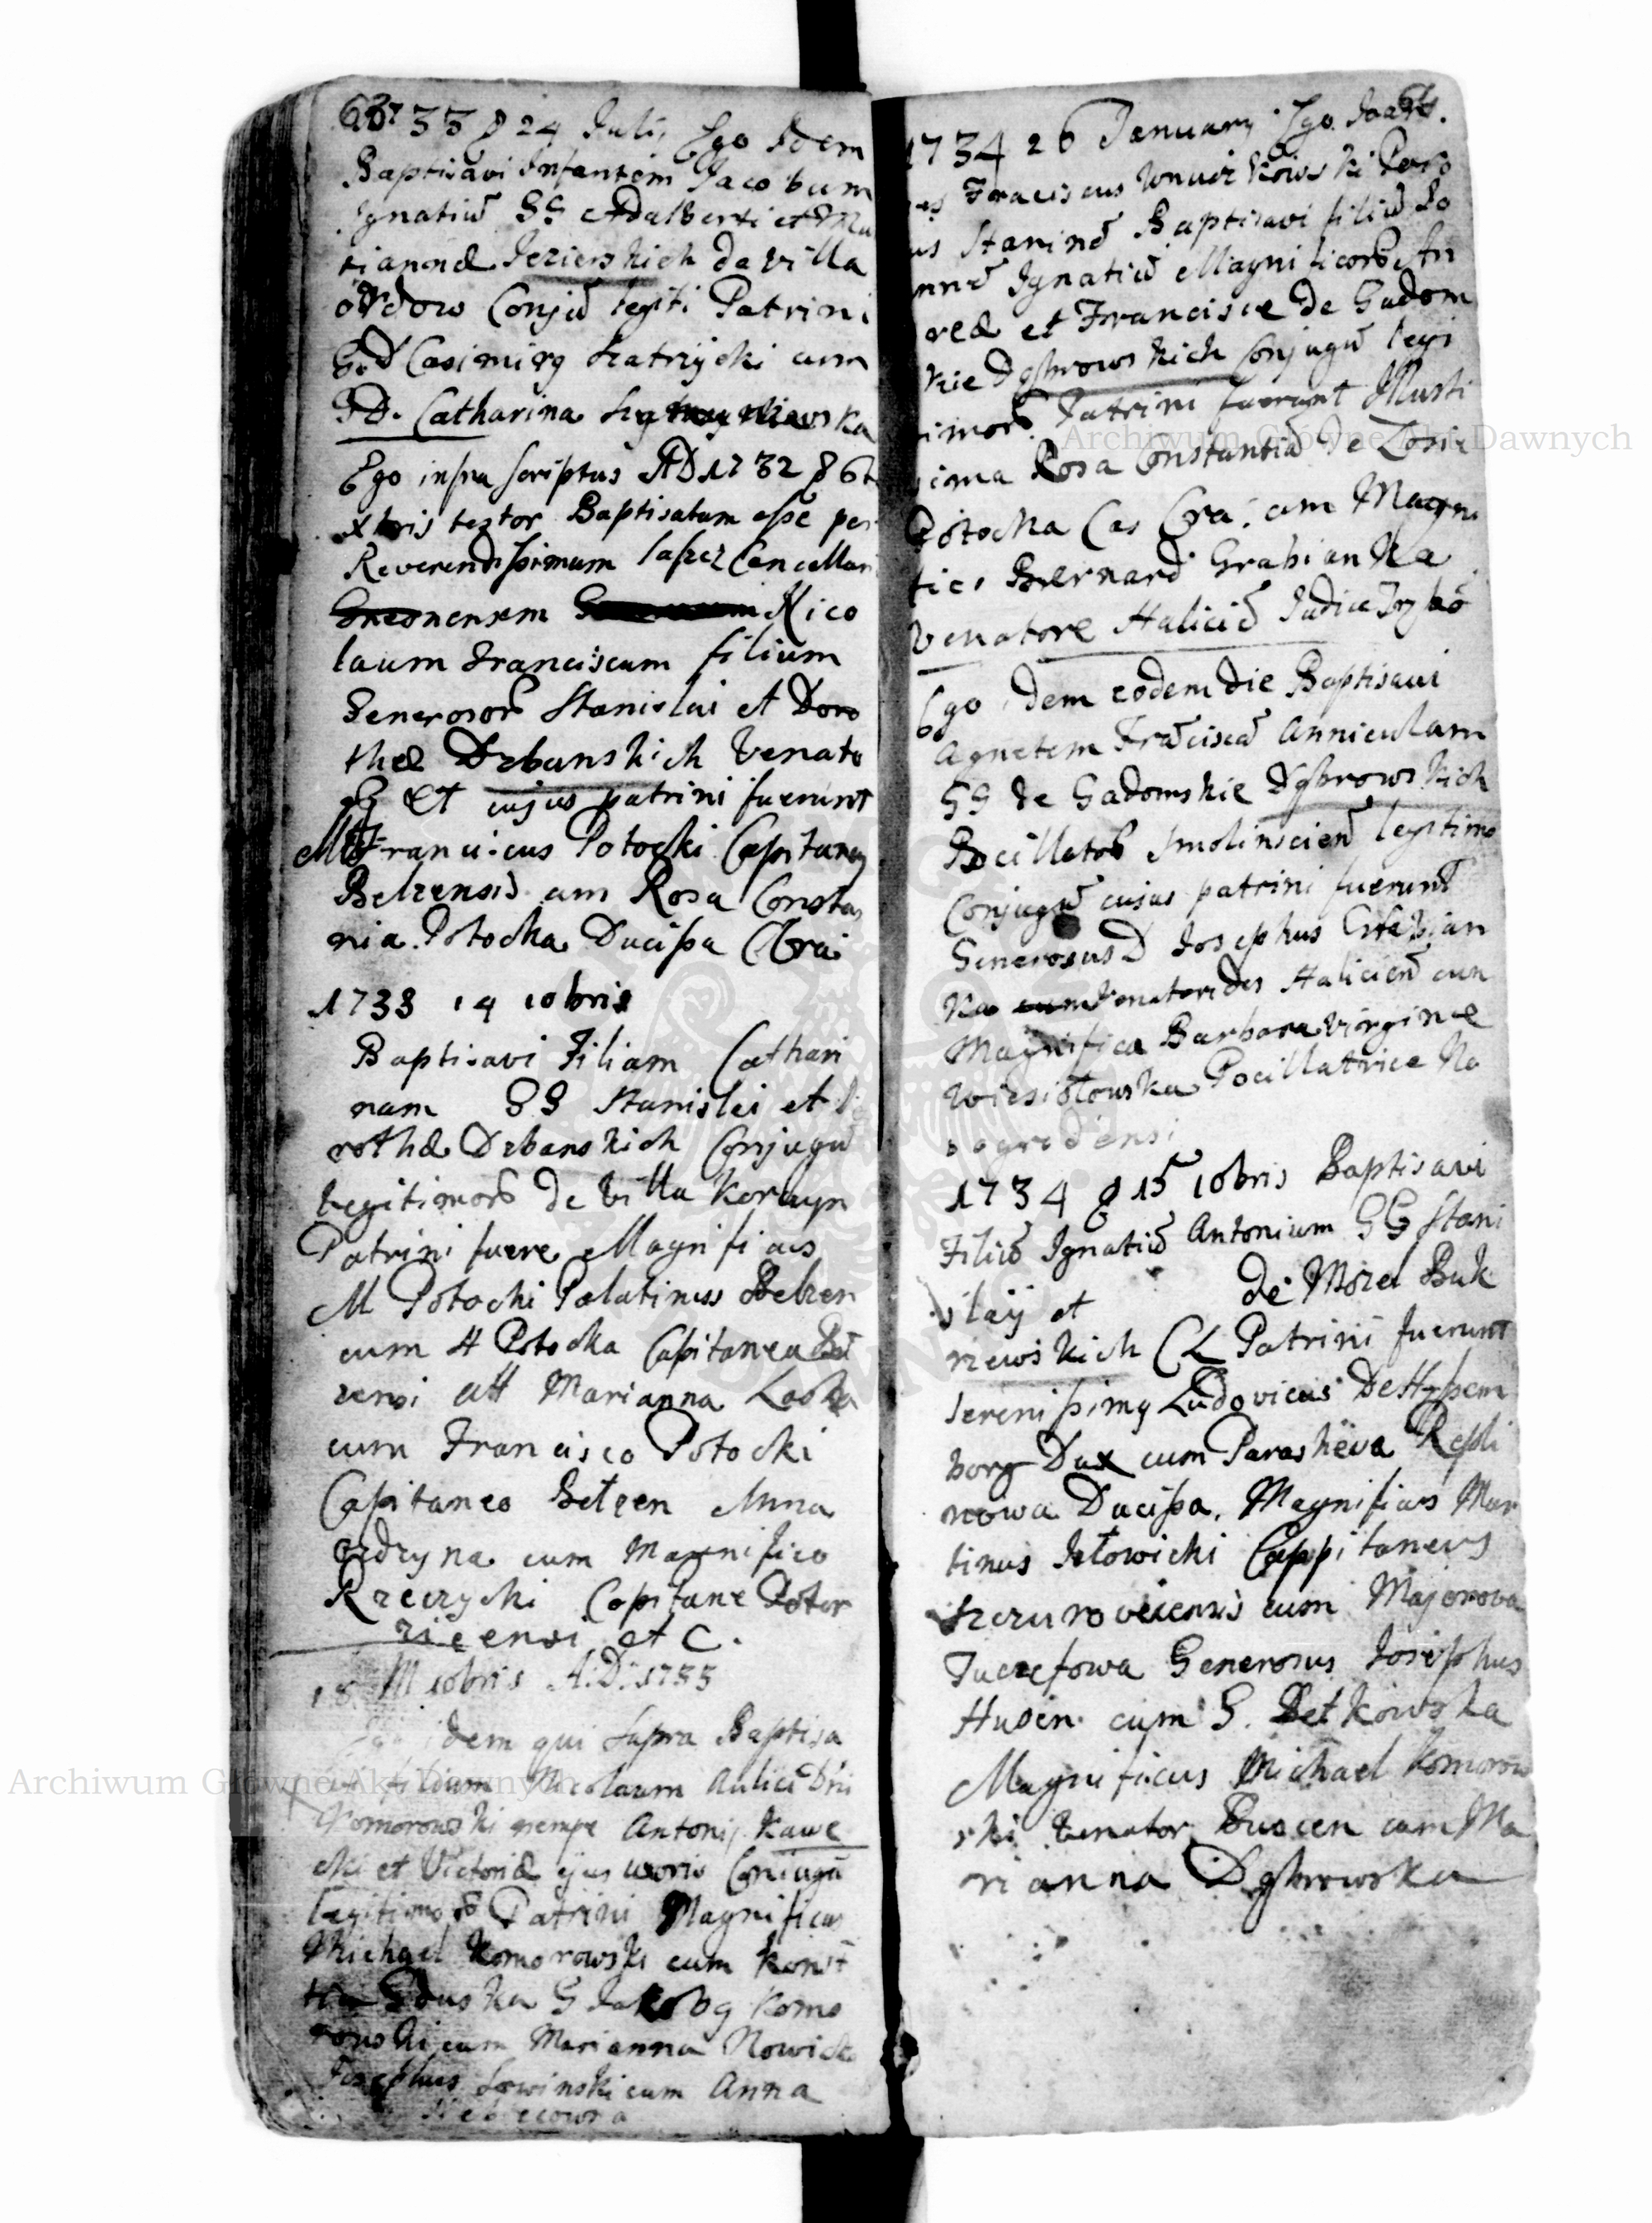 63
1733 d 24 Julij Ego Idem
Baptisavi Infantem Jacobum
Ignatiū GG Adalberti et Ma
riannæ Jezierskich de villa
Ordow Conjū legiti Patrini
G.D Casimirg cum
GD. Catharina
Ego infra scriptus AD 1732 d 6t
xbris testor Baptisatum esse per
Reverendissimum Cancellari
Nico
laum Franciscum filium
Generosorū Stanislai et Doro
theæ Debanskich Venato
Et cujus patrini fuerunt
M Francicus Potocki Capitaneg
Belzensis cum Rosa Constan
nia Potocka Ducissa
1733 14 10bris
Baptisavi Filiam Cathari
nam GG Stanislei et
rotheæ Debanskich Conjugū
legitimorū de villa Korczyn
Patrini fuere Magnificus
M Potocki Palatinus Belzen
cum H Potocka Capitanea Bel
zensi att Marianna Laska
cum Francisco Potocki
Capitaneo Betzen Anna
cum Magnifico
Rzeczycki Capitane Dobr
et C.
18 M 10bris A:D: 1733
Ego idem qui supra Baptisa
vi filium Nicolaum Aulici Dni
Komorowski nempe Antonij Kawe
cki et Victoriæ ejus uxoris Coniugū
legitimorū Patrini Magnificus
Michael Komorowski cum Konst
G Jakobg Komo
rowski cum Marianna Nowicka
Josephus cum Anna
64
1734 26 January Ego Joan
es Franciscus Wnuczkowski Paro
us Staninē Baptisavi filiū Jo
annē Ignatiū Magnificorū An
reæ et Franciscæ de Gadom
skie Dąbrowskich Conjugū legi
timorū Patrini fuerunt Illustri
sima Rosa Constantia de Łosie
Potocka Cas Cra: cum Magni
fico Bernard Grabianka
Venatore Haliciē
Ego idem eodem die Baptisavi
Agnetem Frāciscā Anniculam
GG de Gadomskie Dąbrowskich
Pocillatorū Smolinscien legitimo
Conjugū cujus patrini fuerunt
Generosus D Josephus Grabian
ka Venatorides Halicien cum
Magnifica Barbara virgine
Wiesiołowska Pocillatrice No
vogrodensi
1734 d 15 10bris Baptisavi
Filiū Ignatiū Antonium GG Stani
slaij et de Mozel Buk
rzewskich CL Patrini fuerunt
Serenissimg Ludovicus De Hessem
borg Dux cum Parasheva Repli
nowa Ducissa, Magnificus Mar
tinus Jełowicki Cappitaneus
cum Majorova
Generosus Josephus
Husen cum G. Betkowska
Magnificus Michael Komorow
ski Venator Buscen cum Ma
rianna Dąbrowska
Archiwum Główne Akt Dawnych
Archiwum Główne Akt Dawnych